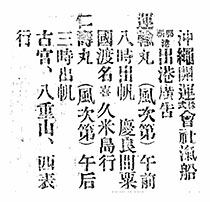 沖繩開運會社滊船
出港廣告
運輸丸(風次第)午前
八時出帆 慶良間粟
國渡名喜久米島行
仁壽丸(風次第)午后
三時出帆
古宮、八重山、西表
行